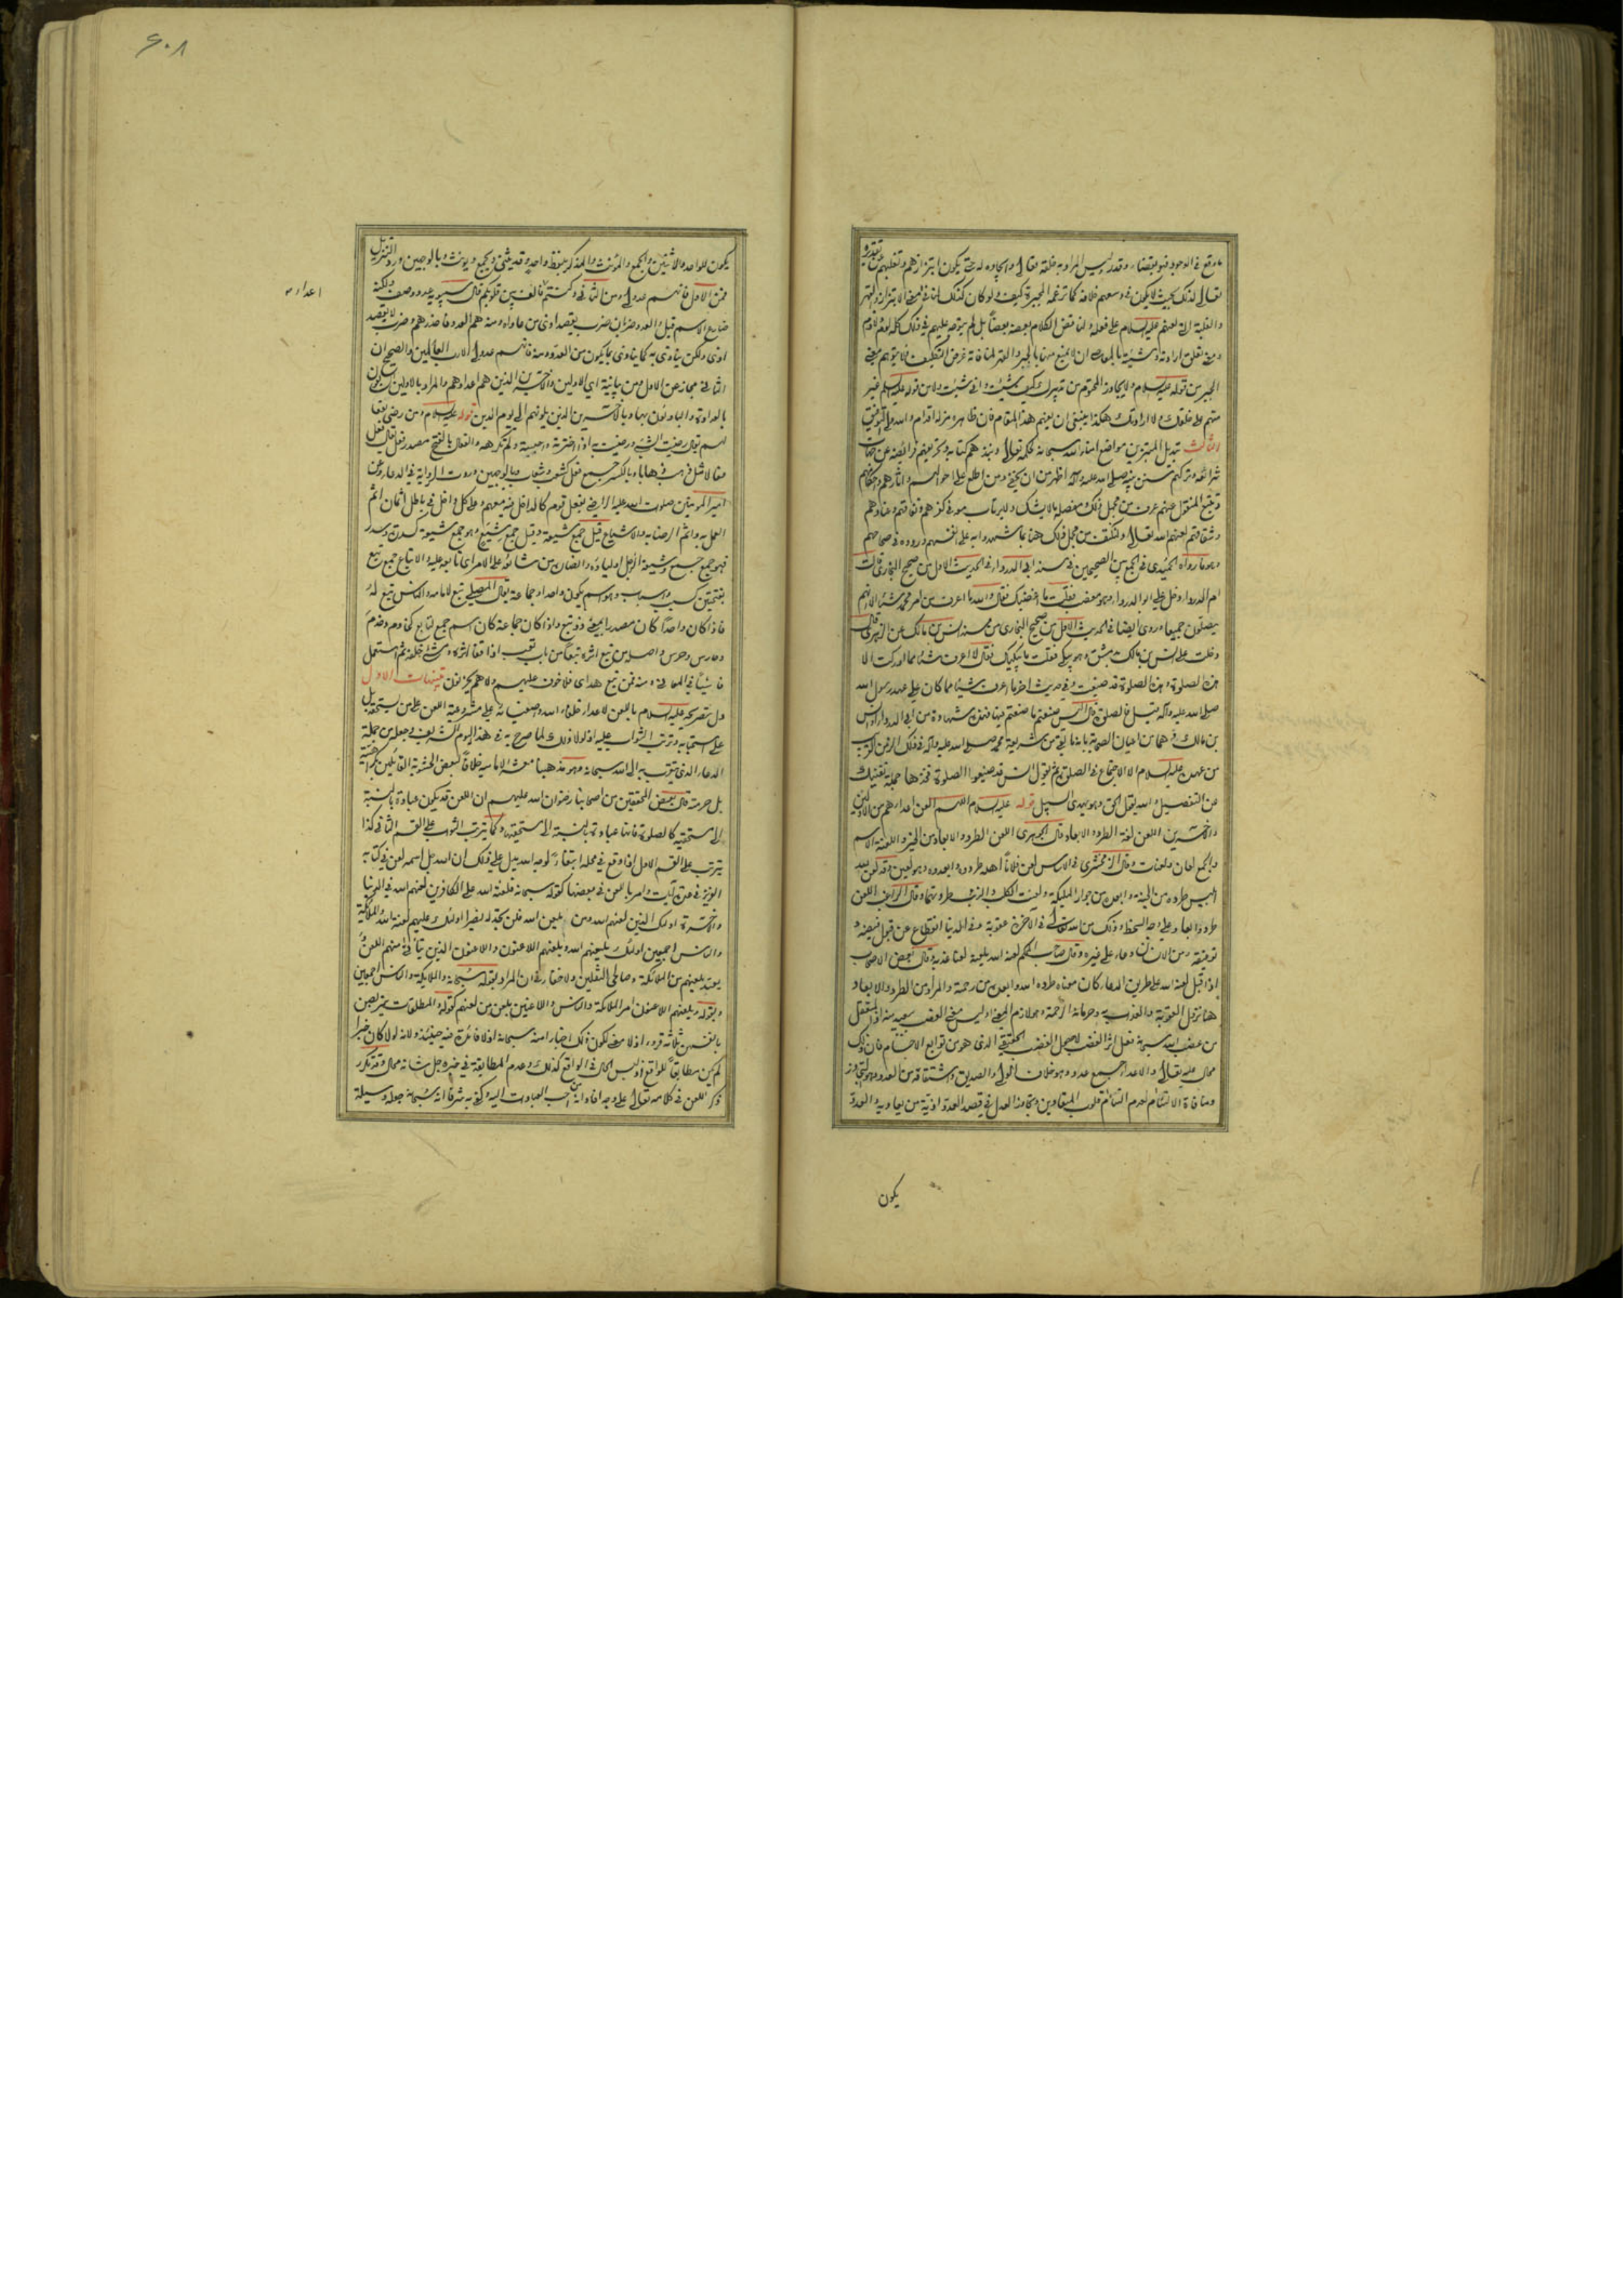 ما وقع في الوجود فهو بقضاء وقدر ليس المراد به خلقه تعالى وايجاده له حتى يكون ابتزازهم وتغلبهم بتقديره
تعالى لذلك بحيث لا يكون في وسعهم خلافه كما تزعمه المجبرة كيف ولو كان كذلك لنافى معنى الابتزاز والقهر
والغلبة التي لعنهم عليه السلام على فعله ولناقض الكلام بعضه بعضاً بل لم يتوجه عليهم في ذلك كله لعن ولا ذم
الجبر من قوله عليه السلام ولا يجاوز المحتوم من تدبيرك كيف شئت وانى شئت ولا من قوله عليه السلم غير
متهم على خلقك ولا ارادتك هكذا ينبغي ان يفهم هذا المقام فان ظاهره مزلة اقدام والله ولي التوفيق
الثالث تبديل المبتزين مواضع امناء الله سبحانه حكمه تعالى ونبذهم كتابه وتحريفهم فرائضه عن جهات
شرائعه وتركهم سنن نبيه صلى الله عليه وآله اظهر من ان يخفى ومن اطلع على احوالهم واثارهم واحكامهم
وتتبع المنقول عنهم عرف من مجمل ذلك ومفصله ما لا يشك ولا يرتاب معه في كفرهم ونفاقهم وعنادهم
وشقاقهم لعنهم الله تعالى ولنكتف من مجمل ذلك هنا بما شهدوا به على انفسهم ورووه في صحاحهم
وهو ما رواه الحميدي في الجمع بين الصحيحين في مسند ابي الدرداء في الحديث الاول من صحيح البخاري قالت
ام الدرداء دخل علي ابو الدرداء وهو مغضب فقلت ما اغضبك فقال والله ما اعرف من امر محمد شيئا الا انهم
يصلون جميعا وروى ايضا في الحديث الاول من صحيح البخاري من مسند انس بن مالك عن الزهري قال
دخلت على انس بن مالك بدمشق وهو يبكي فقلت ما يبكيك فقال لا اعرف شيئا مما ادركت الا
هذه الصلوة وهذه الصلوة قد ضيعت وفي حديث اخر ما اعرف شيئا مما كان على عهد رسول الله
صلى الله عليه وآله قيل فالصلوة قال اليس صنعتم ما صنعتم فيها فهذه شهادة من ابي الدرداء وانس
بن مالك وهما من اعيان الصحابة بانه ما بقي من شريعة محمد صلى الله عليه وآله في ذلك الزمن القريب
من عهده عليه السلام الا الاجتماع في الصلوة ثم يقول انس قد ضيعوا الصلوة فخذها جملة تغنيك
عن التفصيل والله يقول الحق وهو يهدي السبيل قوله عليه السلام اللهم العن اعداءهم من الاولين
والاخرين اللعن لغة الطرد والابعاد قال الجوهري اللعن الطرد والابعاد من الخير واللعنة الاسم
والجمع لعان ولعنات وقال الزمخشري في الاساس لعن فلاناً اهله طردوه وابعدوه وهو لعين وقد لعن الله
ابليس طرده من الجنة وابعده من جوار الملائكة ولعنت الكلب والذئب طردتهما وقال الراغب اللعن
طرد وابعاد على وجه السخط وذلك من الله تعالى في الاخرة عقوبة وفي الدنيا انقطاع عن قبول فيضه و
توفيقه ومن الانسان دعاء على غيره وقال صاحب المحكم لعنه الله يلعنه لعنا عذبه وقال بعض الاصحاب
اذا قيل لعنه الله على طريق الدعاء كان معناه طرده الله وابعده من رحمته والمراد من الطرد والابعاد
هنا نزول العقوبة والعذاب به وحرمانه الرحمة وهو لازم المعنى
من غضب الله سبحانه فعل اثر الغضب لا حصول الغضب الحقيقي الذي هو من توابع الاجسام فان ذلك
محال عليه تعالى والاعداء جمع عدو وهو خلاف الولي والصديق واشتقاقه من العدو وهو التجاوز
ومنافاة الالتئام لعدم التئام قلوب المتعادين
يكون
۶۰۸
يكون للواحد والاثنين والجمع والمؤنث والمذكر بلفظ واحد وقد يثنى ويجمع ويؤنث وبالوجهين ورد التنزيل
فمن الاول فانهم عدو لي ومن الثاني وكنتم اعداء فالف بين قلوبكم قال سيبويه عدو وصف ولكنه
ضارع الاسم قيل والعدو ضربان ضرب يقصد اذى من عاداه ومنه هم العدو فاحذرهم وضرب لا يقصد
اذى ولكن يتاذى به كما يتاذى بما يكون من العدو ومنه فانهم عدو لي الا رب العالمين والصحيح ان
الثاني مجاز عن الاول ومن بيانية اي الاولين والاخرين الذين هم اعداؤهم والمراد بالاولين السابقون
بالعداوة والبادئون بها وبالاخرين الذين يلونهم الى يوم الدين قوله عليه السلام ومن رضي بفعالهم
امير المؤمنين صلوات الله عليه الراضي بفعل قوم كالداخل فيه معهم وعلى كل داخل في باطل اثمان اثم
العمل به واثم الرضا به والاشياع قيل جمع شيعة وقيل جمع شيع وهو جمع شيعة كسدرة وسدر
فهو جمع جمع وشيعة الرجل اولياؤه وانصاره من شايعه على الامر اي تابعه عليه والاتباع جمع تبع
بفتحتين كسبب واسباب وهو اسم يكون واحدا وجماعة يقال المصلي تبع لامامه والناس تبع له
فاذا كان واحداً كان مصدرا بمعنى ذو تبع واذا كان جماعة كان اسم جمع لتابع كخادم وخدم
وحارس وحرس واصله من تبع اثره تبعاً من باب تعب اذا قفا اثره ومشى خلفه ثم استعمل
فاشياً في المعاني ومنه فمن تبع هداي فلا خوف عليهم ولا هم يحزنون تنبيهات الاول
دل تصريحه عليه السلام باللعن لاعداء خلفاء الله واصفيائه على مشروعية اللعن على من يستحقه بل
على استحبابه وترتب الثواب عليه اذ لولا ذلك لما صرح به في هذا اليوم الشريف وجعله من جملة
الدعاء الذي يتقرب به الى الله سبحانه وهو مذهبنا معشر الامامية خلافاً لبعض الحشوية القائلين بكراهيته
بل حرمته قال بعض المحققين من اصحابنا رضوان الله عليهم ان اللعن قد يكون عبادة بالنسبة
الى مستحقيه كالصلوة فانها عبادة بالنسبة الى مستحقيها وكما يترتب الثواب على القسم الثاني كذا
يترتب على القسم الاول اذا وقع في محله ابتغاءً لوجه الله يدل على ذلك ان الله جل اسمه لعن في كتابه
العزيز في عدة آيات وامر باللعن في بعضها كقوله سبحانه فلعنة الله على الكافرين لعنهم الله في الدنيا
والاخرة اولئك الذين لعنهم الله ومن يلعن الله فلن تجد له نصيرا اولئك عليهم لعنة الله والملائكة
والناس اجمعين اولئك يلعنهم الله ويلعنهم اللاعنون واللاعنون الذين يتأتى منهم اللعن و
يعتد بلعنهم من الملائكة وصالحي الثقلين ولا خفاء في ان المراد بقوله سبحانه والملائكة والناس اجمعين
وبقوله ويلعنهم اللاعنون امر الملائكة والناس واللاعنين بلعن من لعنهم كقوله والمطلقات يتربصن
بانفسهن ثلثة قروء اذ لا معنى لكون ذلك اخبارا منه سبحانه اذ لا فائدة فيه حينئذ ولانه لو كان خبرا
لم يكن مطابقاً للواقع اذ ليس الحال في الواقع كذلك وعدم المطابقة في خبره جل شانه محال وقد تكرر
ذكر اللعن في كلامه تعالى على وجه افاد انه من احب العبادات اليه وكفى به شرفا انه سبحانه جعله وسيلة
اعداء